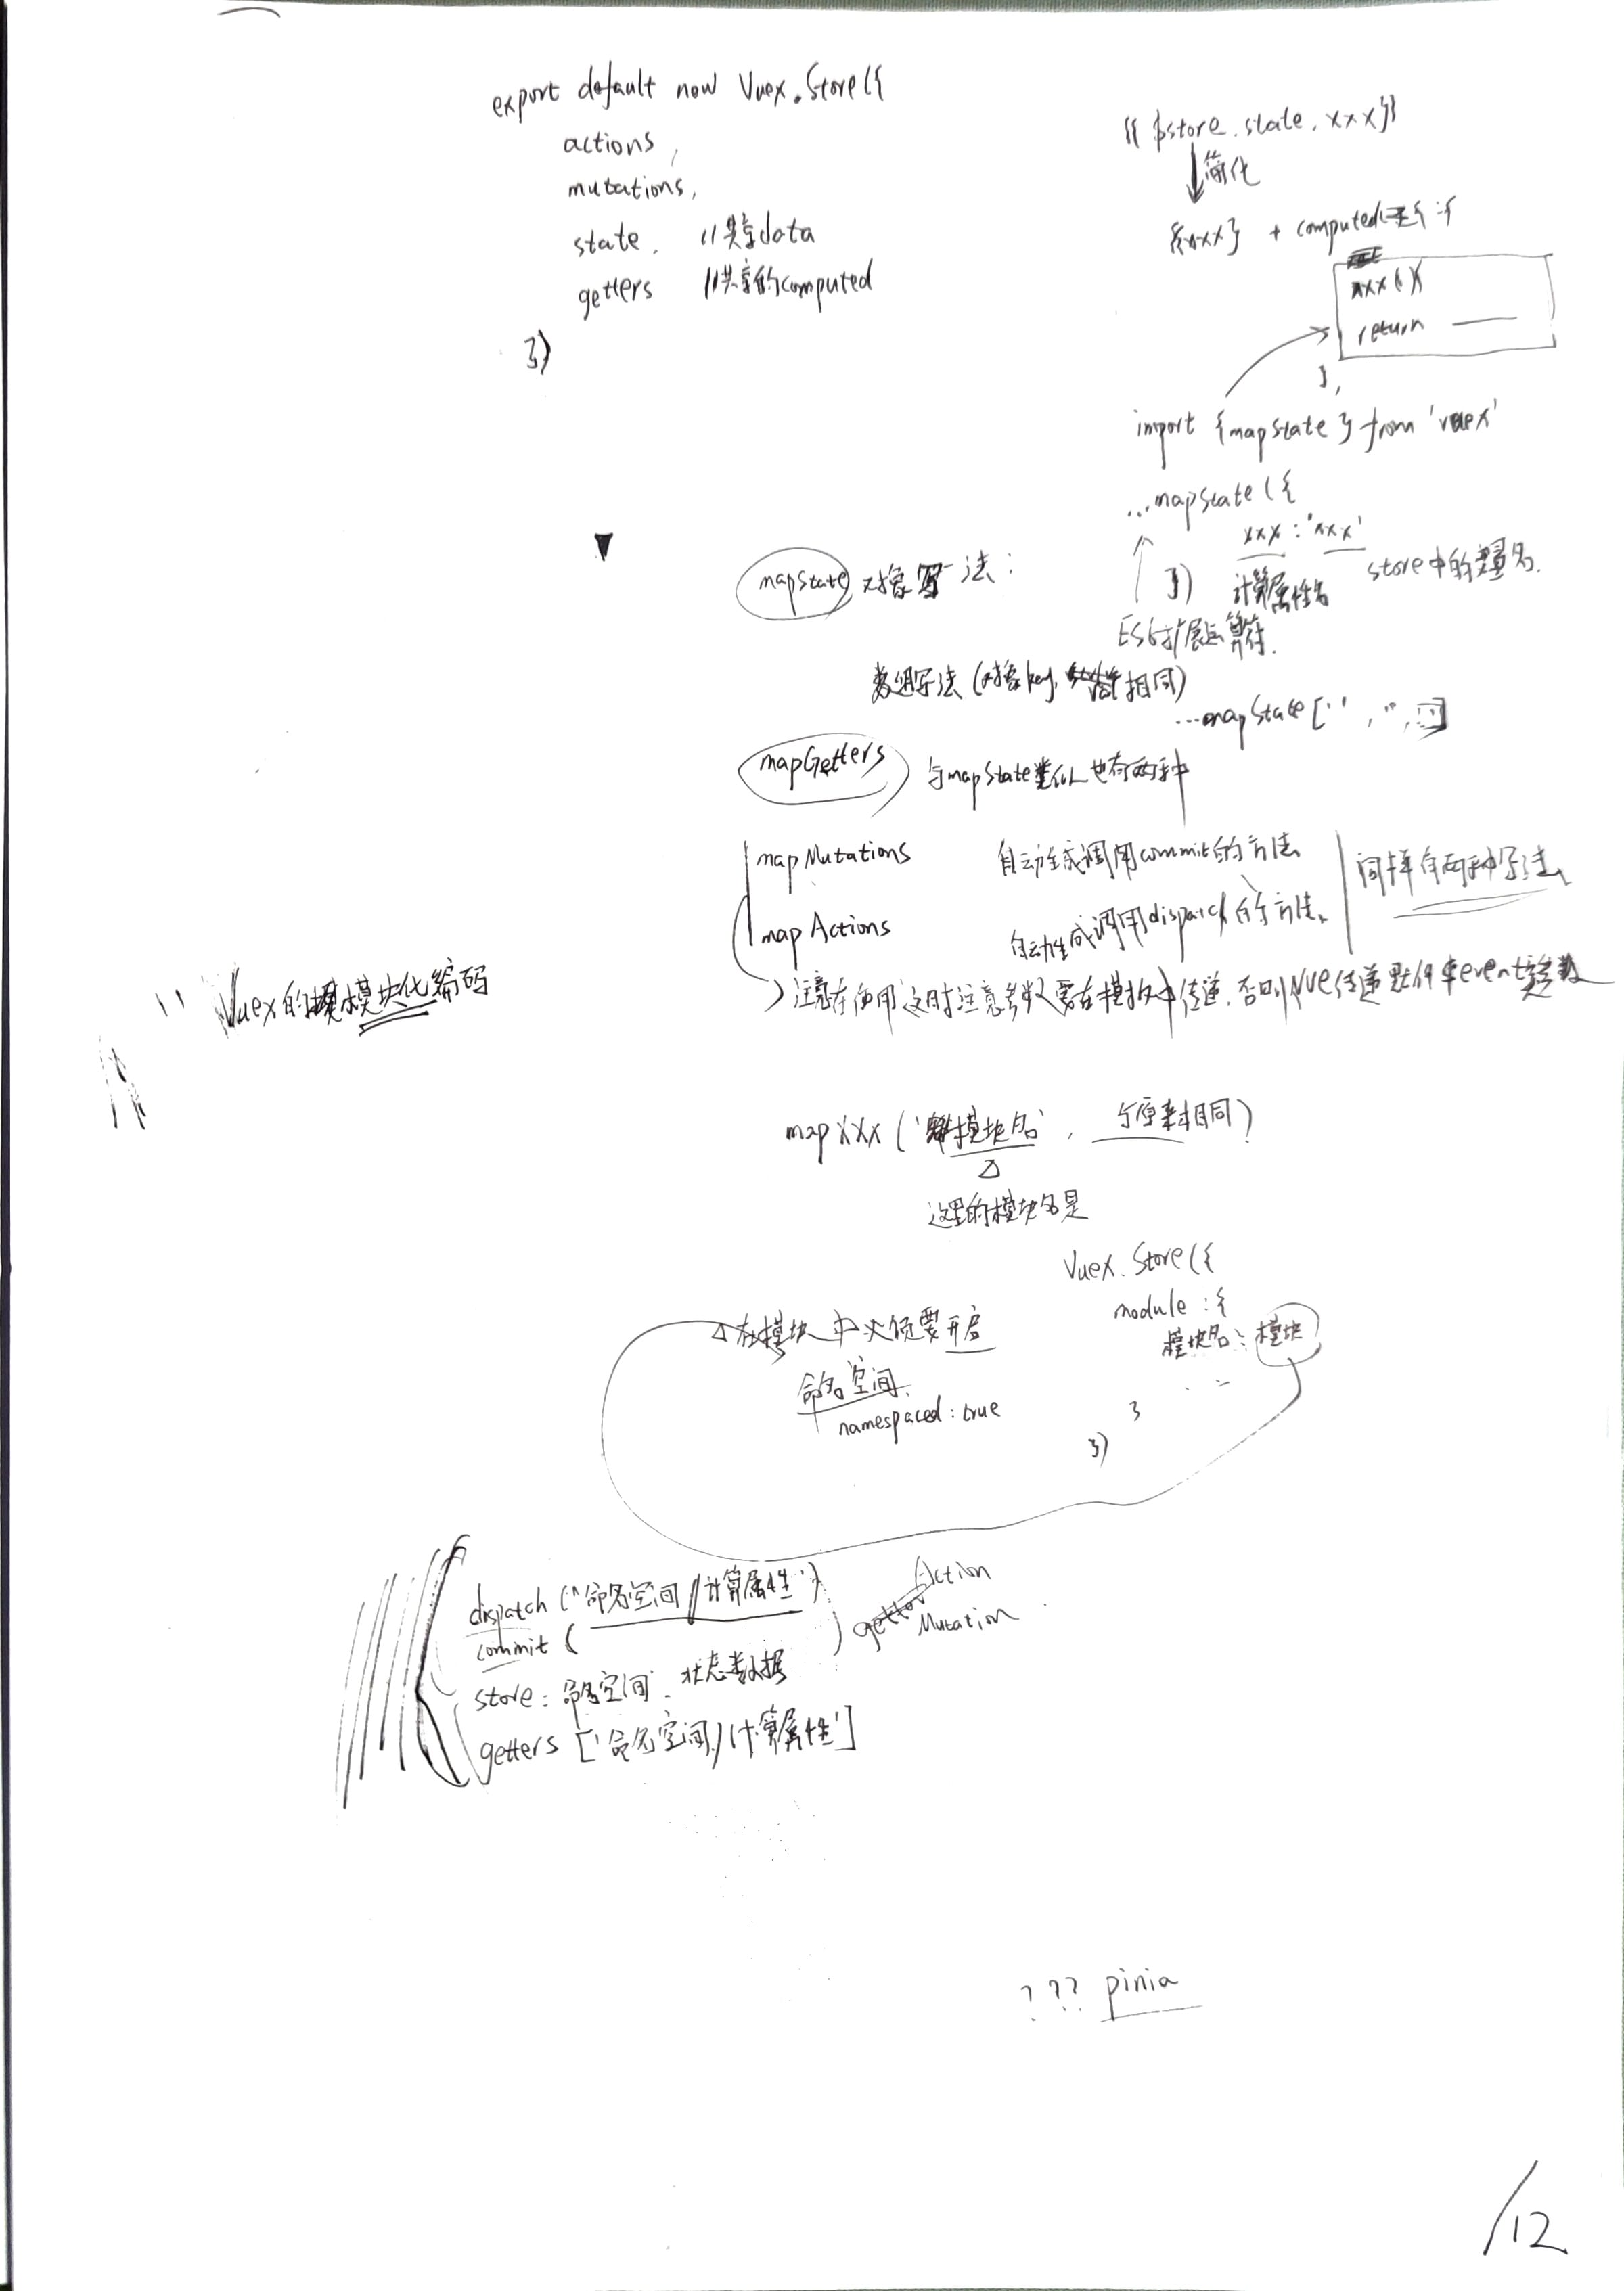 export default now Vuex.Store({
actions,
mutations,
state, //共享data
getters //共享的computed
})
{{ $store.state.xxx}}
简化
{{xxx} + computed :{
xxx(){
return ——
},
import {mapState } from 'vuex'
...mapState ({
xxx : 'xxx'
mapState 对象写法: }) 计算属性名 store中的变量名.
ES6扩展运算符.
数组写法 (对象key, 相同)
...mapState ['' , '', ]
mapGetters 与mapState类似 也有两种
mapMutations 自动生成调用commit的方法
同样有两种写法
mapActions 自动生成调用dispatch的方法
注意在使用这时注意参数要在模板中传递, 否则Vue传递默认event参数
Vuex的模块化编码
mapXXX ('模块名', 与原来相同)
△
这里的模块名是
Vuex.Store({
module :{
模块名: 模块
...
}
})
△在模块中必须要开启
命名空间.
namespaced: true
dispatch ("命名空间/计算属性') Action
commit ( ) Mutation
store: 命名空间. 状态数据
getters ['命名空间/计算属性']
??? pinia
/12